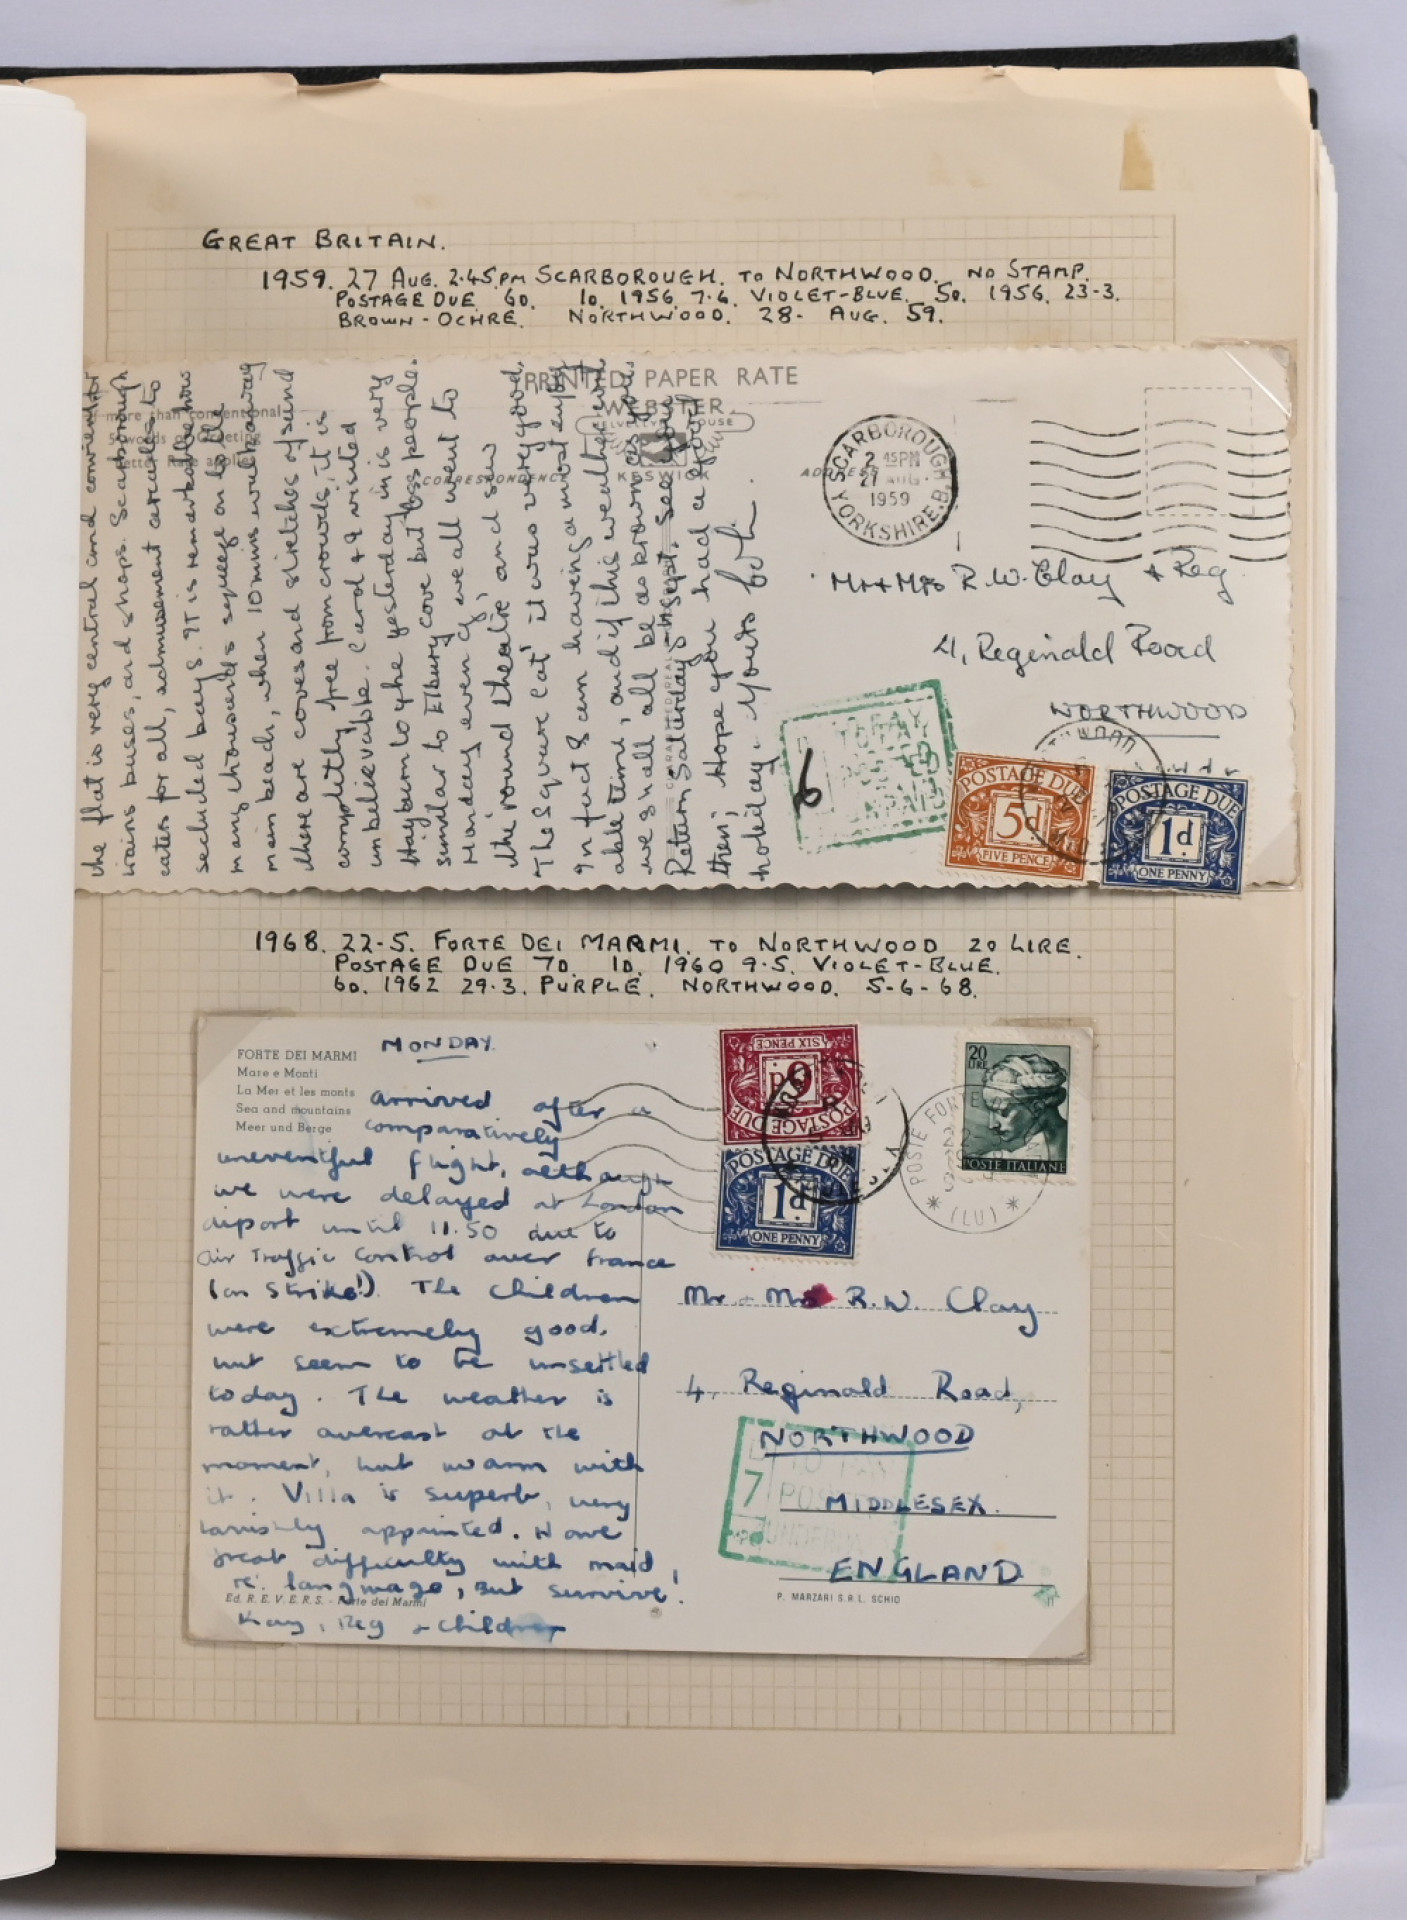 GREAT BRITAIN.
1959. 27 AUG. 2.45PM SCARBOROUGH. TO NORTHWOOD. NO STAMP.
POSTAGE DUE 6D. 1D. 1956. 7.6. VIOLET-BLUE. 5D. 1956. 23-3.
BROWN-OCHRE. NORTHWOOD. 28- AUG. 59.
PRINTED PAPER RATE
more than conventional
5 words of Greeting
letter rate applies
WEBSTER
HELVELLYN HOUSE
KESWICK
CORRESPONDENCE
ADDRESS
SCARBOROUGH,
2 45PM
27 AUG
1959
YORKSHIRE.B.
the flat is very central and convenient for
trains buses, and shops. Scarborough
caters for all, admusement arcades to
secluded bays. It is remarkable how
many thousands squeeze on to the
main beach, when 10 mins walk away
there are coves and stretches of sand
completly free from crowds, it is
unbelievable. Carol & I visited
Hayburn Wyke yesterday in is very
similar to Elbury cove but less people.
Monday evening, we all went to
the round theatre and saw
'The Square Cat' it was very good.
In fact I am having a most enjoy
able time, and if this weather
we shall all be as brown as
Return Saturday 5 Sept. see you
then; Hope you had a good
holiday. Yours both.
Mr & Mrs R.W. Clay & Reg
4, Reginald Road
NORTHWOOD
6
TO PAY
POSTED
UNPAID
POSTAGE DUE
5d.
FIVE PENCE
POSTAGE DUE
1d.
ONE PENNY
1968. 22-5. FORTE DEI MARMI. TO NORTHWOOD 20 LIRE.
POSTAGE DUE 7D. 1D. 1960 9.5. VIOLET-BLUE.
6D. 1962 29.3. PURPLE. NORTHWOOD. 5-6-68.
FORTE DEI MARMI
Mare e Monti
La Mer et les monts
Sea and mountains
Meer und Berge
MONDAY.
arrived after a
comparatively
uneventful flight, although
we were delayed at London
airport until 11.50 due to
air Traffic Control over France
(on Strike!). The children
were extremely good,
but seem to be unsettled
today. The weather is
rather overcast at the
moment, but warm with
it. Villa is superb, very
lavishly appointed. Have
great difficulty with maid
re. language, but survive!
Kay, Reg & children
Ed. R.E.V.E.R.S. - Forte dei Marmi
SIX PENCE
6d
POSTAGE DUE
POSTAGE DUE
1d.
ONE PENNY
20
LIRE
POSTE ITALIANE
POSTE FORTE
(LU)
Mr & Mrs R.W. Clay
4, Reginald Road,
NORTHWOOD
MIDDLESEX.
ENGLAND
7
TO PAY
POSTED
UNDERPAID
P. MARZARI S.R.L. SCHIO